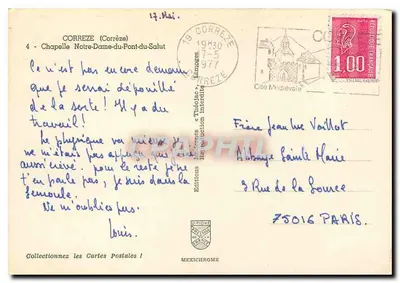 17 Mai.
CORREZE (Corrèze)
4 - Chapelle Notre-Dame-du-Pont-du-Salut
19 CORREZE
17-5
1977
CORREZE
Cité Médiévale
1.00
Ce n'est pas encore demain
que je serai dépouillé
de la sorte! Il y a du
travail!
Le physique va mieux. Je
ne m'étais pas
aussi crevé. pour le reste
t'en parle pas, je suis dans la
semoule.
Ne m'oublies pas.
Louis.
Editions "Théojac", Limoges
Reproduction Interdite
Frère Jean Luc Vaillot
Abbaye Sainte Marie
3 Rue de la Source
75016 PARIS.
Collectionnez les Cartes Postales !
MEXICHROME